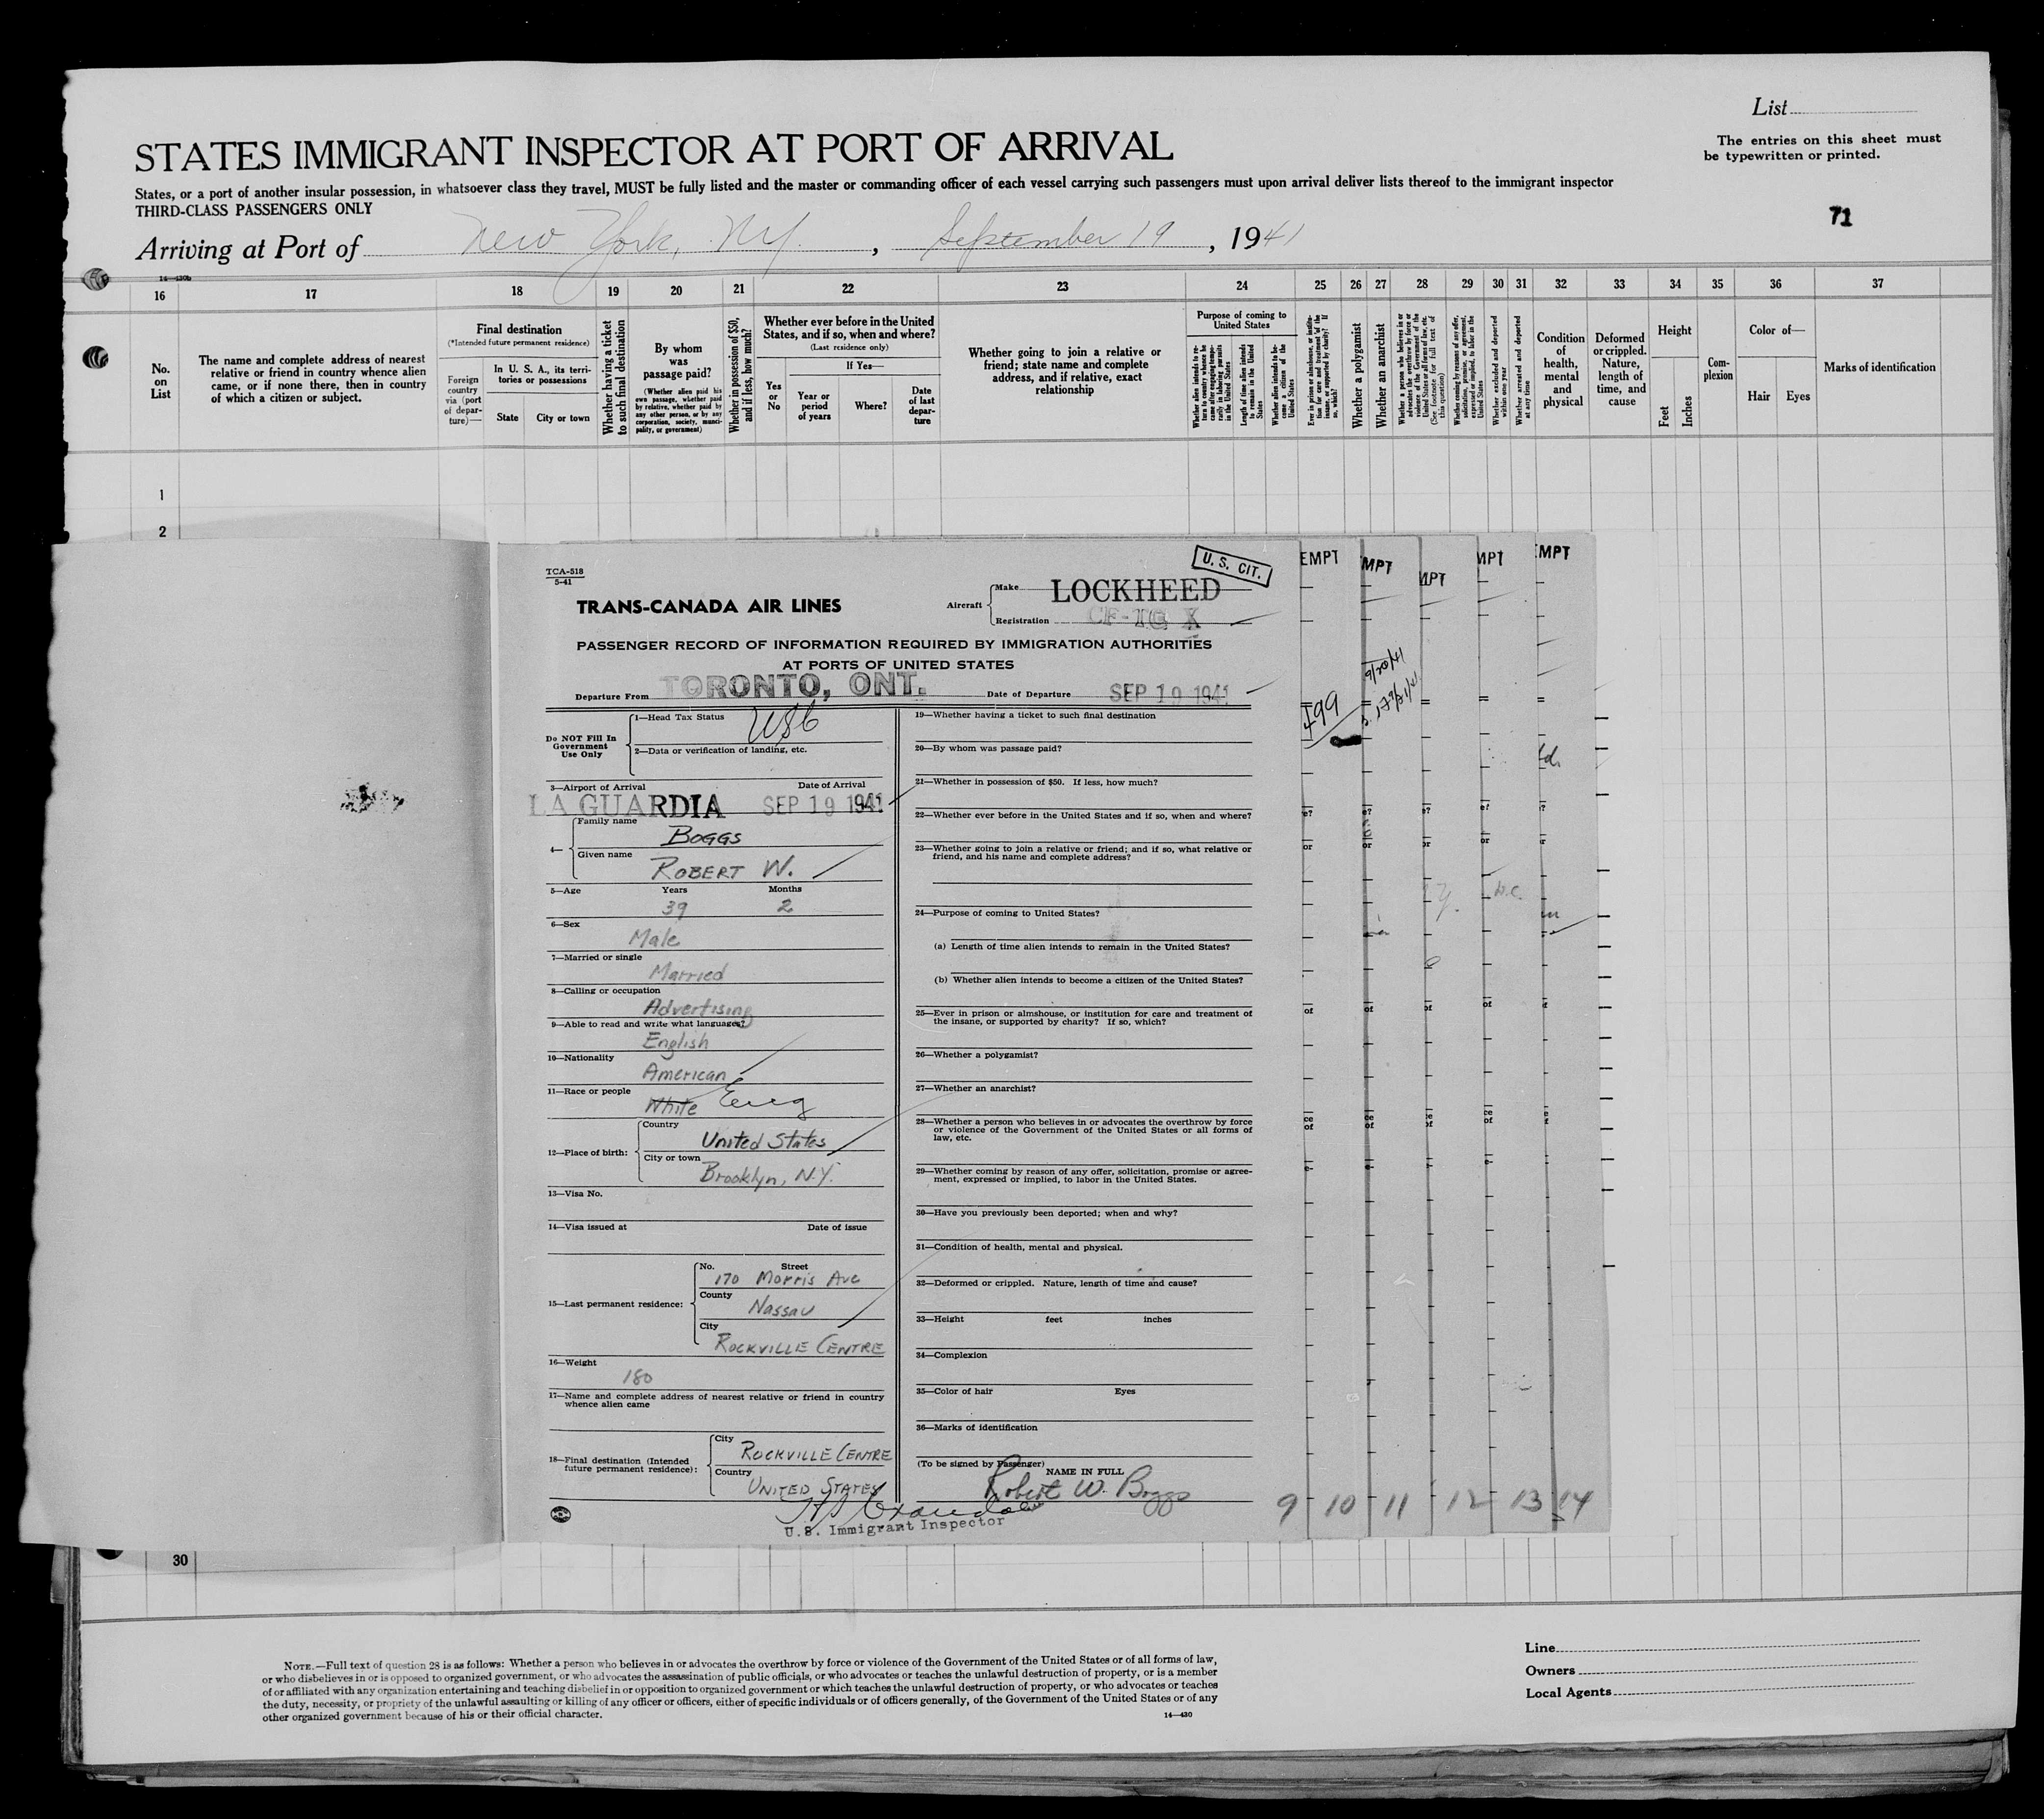 List
The entries on this sheet must
be typewritten or printed.
STATES IMMIGRANT INSPECTOR AT PORT OF ARRIVAL
States, or a port of another insular possession, in whatsoever class they travel, MUST be fully listed and the master or commanding officer of each vessel carrying such passengers must upon arrival deliver lists thereof to the immigrant inspector
THIRD-CLASS PASSENGERS ONLY
71
Arriving at Port of New York, N.Y. , September 19 , 1941
14—430b
16 17 18 19 20 21 22 23 24 25 26 27 28 29 30 31 32 33 34 35 36 37
No. on List
The name and complete address of nearest relative or friend in country whence alien came, or if none there, then in country of which a citizen or subject.
Final destination
(*Intended future permanent residence)
Foreign country via (port of departure)—
In U. S. A., its territories or possessions
State City or town
Whether having a ticket to such final destination
By whom was passage paid?
(Whether alien paid his own passage, whether paid by relative, whether paid by any other person, or by any corporation, society, municipality, or government)
Whether in possession of $50, and if less, how much?
Whether ever before in the United States, and if so, when and where?
(Last residence only)
Yes or No
If Yes—
Year or period of years
Where?
Date of last departure
Whether going to join a relative or friend; state name and complete address, and if relative, exact relationship
Purpose of coming to United States
Length of time alien intends to remain in the United States
Whether alien intends to become a citizen of the United States
Whether a polygamist
Whether an anarchist
Whether excluded and deported within one year
Whether arrested and deported at any time
Condition of health, mental and physical
Deformed or crippled. Nature, length of time, and cause
Height
Feet Inches
Complexion
Color of—
Hair Eyes
Marks of identification
1
2
TCA-518
5-41
TRANS-CANADA AIR LINES
U. S. CIT.
Aircraft
Make LOCKHEED
Registration CF-TG X
PASSENGER RECORD OF INFORMATION REQUIRED BY IMMIGRATION AUTHORITIES
AT PORTS OF UNITED STATES
Departure From TORONTO, ONT. Date of Departure SEP 19 1941
Do NOT Fill In Government Use Only
1—Head Tax Status
2—Data or verification of landing, etc.
3—Airport of Arrival Date of Arrival
LA GUARDIA SEP 19 1941
4—
Family name
BOGGS
Given name
ROBERT W.
5—Age Years Months
39 2
6—Sex
Male
7—Married or single
Married
8—Calling or occupation
Advertising
9—Able to read and write what languages?
English
10—Nationality
American
11—Race or people
White Eng
12—Place of birth:
Country
United States
City or town
Brooklyn, N.Y.
13—Visa No.
14—Visa issued at Date of issue
15—Last permanent residence:
No. Street
170 Morris Ave
County
Nassau
City
ROCKVILLE CENTRE
16—Weight
180
17—Name and complete address of nearest relative or friend in country
whence alien came
18—Final destination (Intended
future permanent residence):
City
ROCKVILLE CENTRE
Country
UNITED STATES
U.S. Immigrant Inspector
19—Whether having a ticket to such final destination
20—By whom was passage paid?
21—Whether in possession of $50. If less, how much?
22—Whether ever before in the United States and if so, when and where?
23—Whether going to join a relative or friend; and if so, what relative or
friend, and his name and complete address?
24—Purpose of coming to United States?
(a) Length of time alien intends to remain in the United States?
(b) Whether alien intends to become a citizen of the United States?
25—Ever in prison or almshouse, or institution for care and treatment of
the insane, or supported by charity? If so, which?
26—Whether a polygamist?
27—Whether an anarchist?
28—Whether a person who believes in or advocates the overthrow by force
or violence of the Government of the United States or all forms of
law, etc.
29—Whether coming by reason of any offer, solicitation, promise or agree-
ment, expressed or implied, to labor in the United States.
30—Have you previously been deported; when and why?
31—Condition of health, mental and physical.
32—Deformed or crippled. Nature, length of time and cause?
33—Height feet inches
34—Complexion
35—Color of hair Eyes
36—Marks of identification
(To be signed by Passenger)
NAME IN FULL
Robert W. Boggs
EMPT MPT MPT MPT EMPT
499
9/20/41
9 10 11 12 13 14
30
NOTE.—Full text of question 28 is as follows: Whether a person who believes in or advocates the overthrow by force or violence of the Government of the United States or of all forms of law,
or who disbelieves in or is opposed to organized government, or who advocates the assassination of public officials, or who advocates or teaches the unlawful destruction of property, or is a member
of or affiliated with any organization entertaining and teaching disbelief in or opposition to organized government or which teaches the unlawful destruction of property, or who advocates or teaches
the duty, necessity, or propriety of the unlawful assaulting or killing of any officer or officers, either of specific individuals or of officers generally, of the Government of the United States or of any
other organized government because of his or their official character.
14—430
Line
Owners
Local Agents